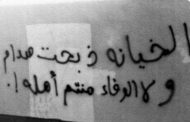 الخيانه ذبحت صدام
ولا الوفاء منتم أهله !.